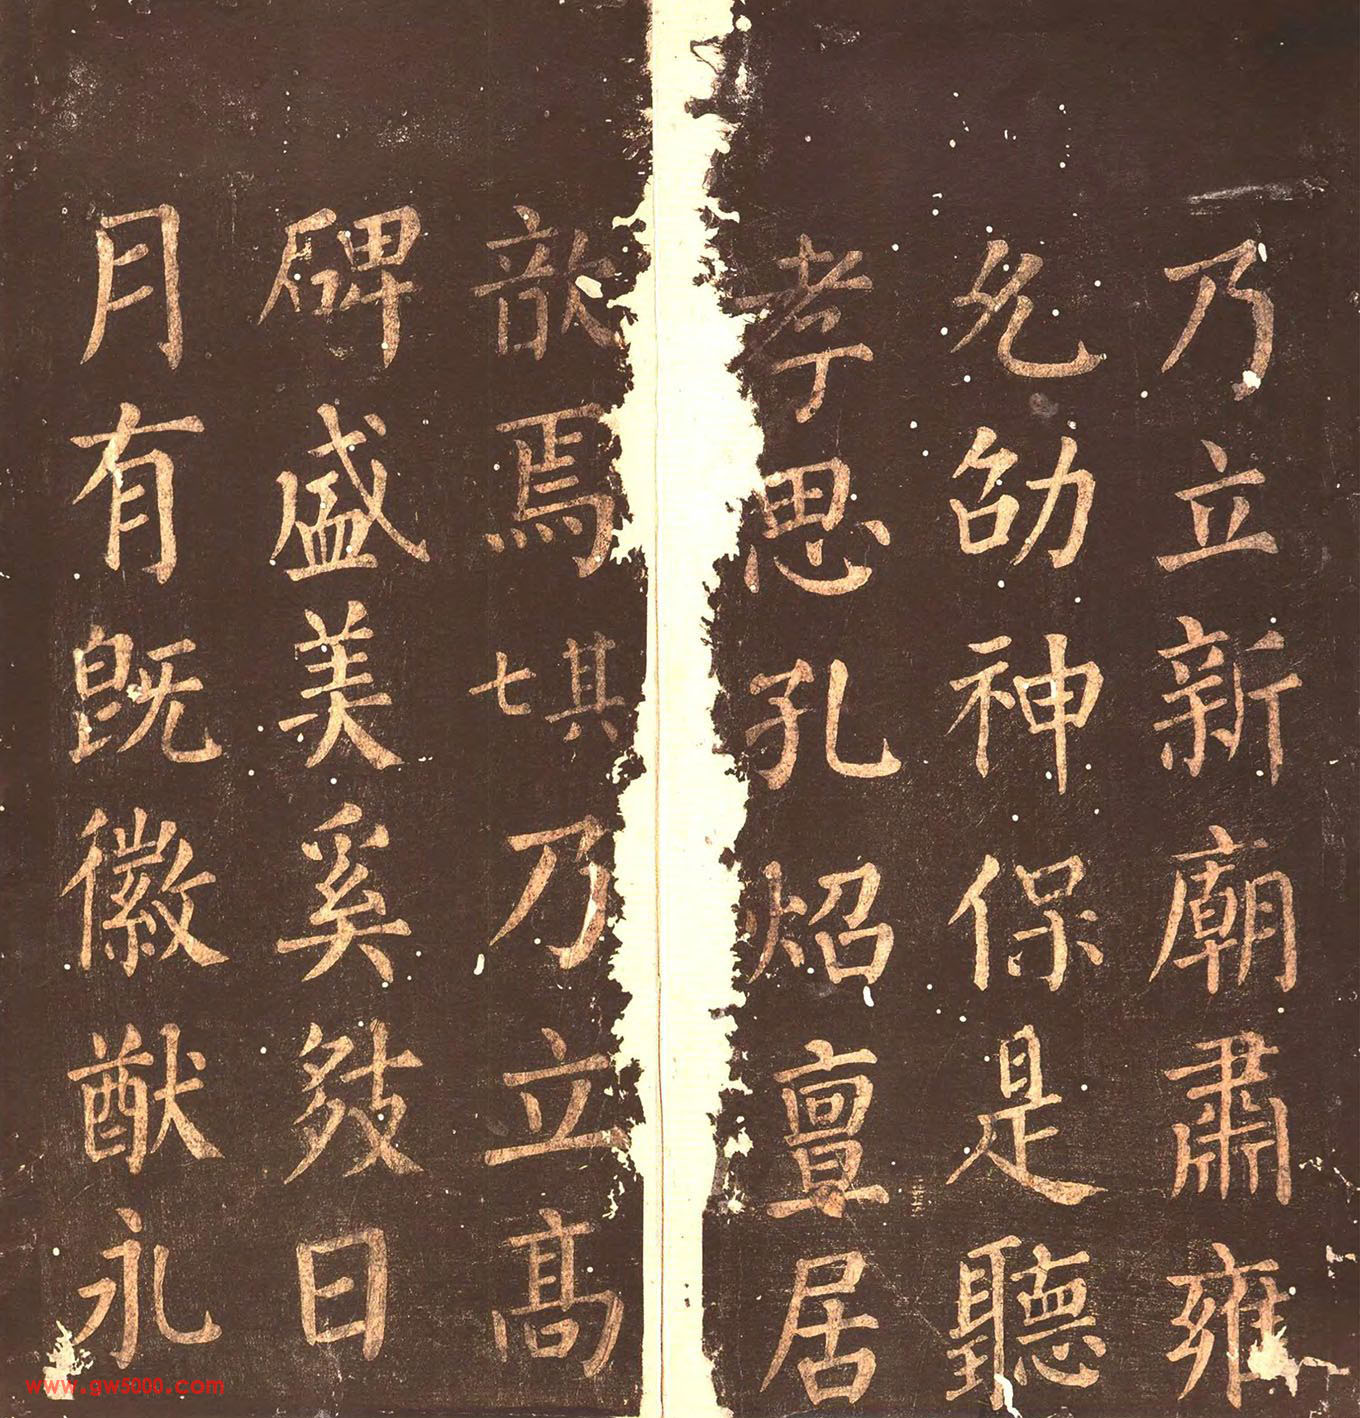 乃立新廟肅雍
允劭神保是聽
孝思孔炤亶居
歆焉其七乃立高
碑盛美奚斁日
月有既徽猷永
www.gw5000.com